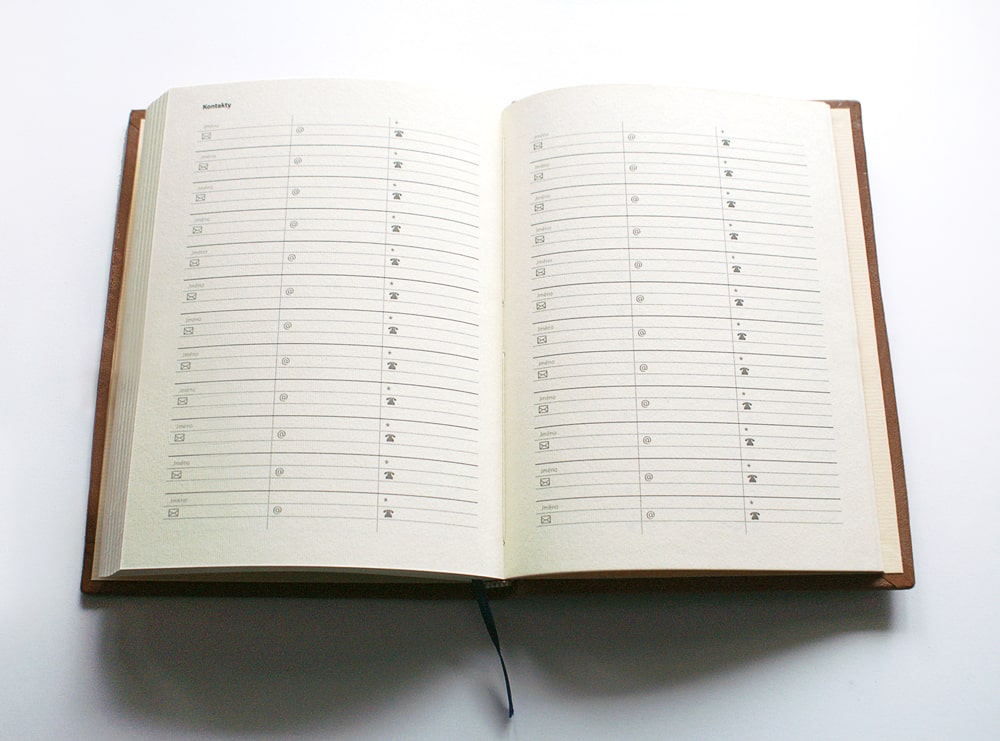 Kontakty
Jméno *
@
Jméno *
@
Jméno *
@
Jméno *
@
Jméno *
@
Jméno *
@
Jméno *
@
Jméno *
@
Jméno *
@
Jméno *
@
Jméno *
@
Jméno *
@
Jméno *
@
Jméno *
@
Jméno *
@
Jméno *
@
Jméno *
@
Jméno *
@
Jméno *
@
Jméno *
@
Jméno *
@
Jméno *
@
Jméno *
@
Jméno *
@